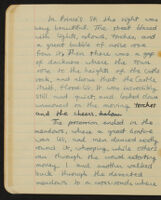 In Princes St. the sight was
very beautiful. The street blazed
with lights, above, torches, and
a great bubble of noise rose
from it. Then there was a gap
of darkness where the town
rose to the heights of the castle
rock, and above that the Castle
itself, floodlit. It was incredibly
still and quiet, and looked down
unmoved on the moving torches
and the cheers below.
The procession ended in the
meadows, where a great bonfire
was lit, and men danced madly
round it, whooping while others
ran through the crowd collecting
money. I and another walked
back through the deserted
meadows to a crossroads where